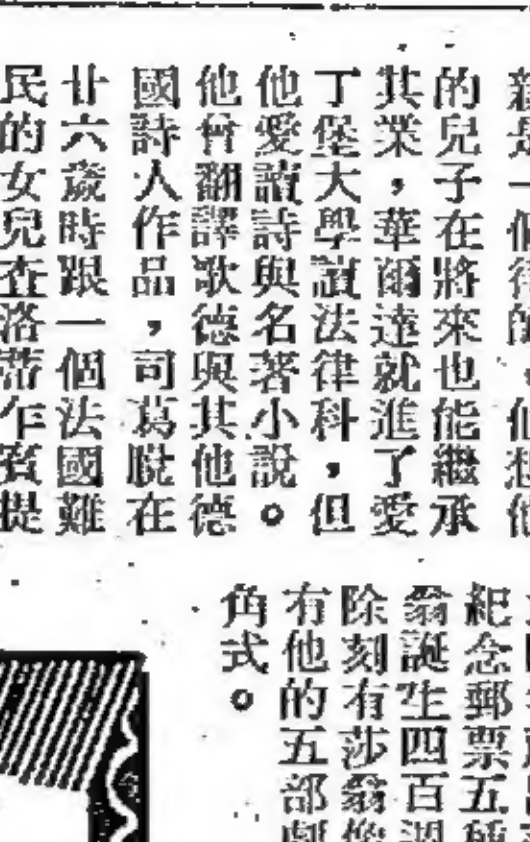 親是一個律師，他想他
的兒子在將來也能繼承
其業，華爾達就進了愛
丁堡大學讀法律科，但
他愛讀詩與名著小說。
他曾翻譯歌德與其他德
國詩人作品，司葛脫在
廿六歲時跟一個法國難
民的女兒查洛蒂乍賓提
紀念郵票五種
翁誕生四百週
除刻有莎翁像
有他的五部劇
角式。